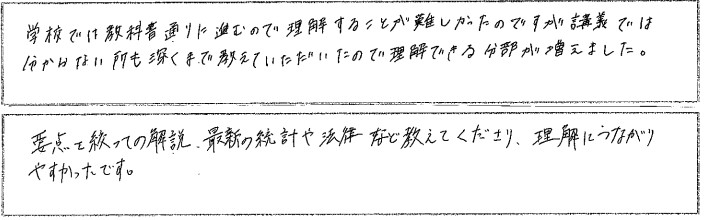 学校では教科書通りに進むので理解することが難しかったのですが講義では
分からない所も深くまで教えていただいたので理解できる分部が増えました。
要点を絞っての解説、最新の統計や法律など教えてくださり、理解につながり
やすかったです。